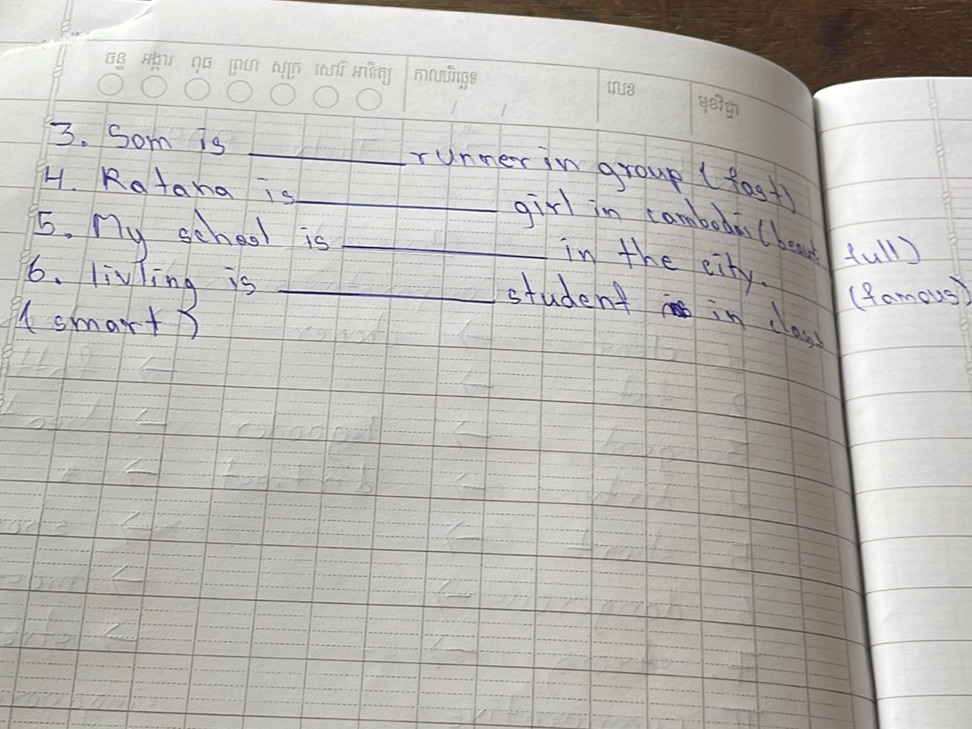 ចន្ទ អង្គារ ពុធ ព្រហ សុក្រ សៅរ៍ អាទិត្យ កាលបរិច្ឆេទ លេខ មុខវិជ្ជា
/ /
3. Som is ________ runner in group (fast)
4. Ratana is ________ girl in cambodai (beautifull)
5. My school is ________ in the city. (famous)
6. livling is ________ student in class
( smart )